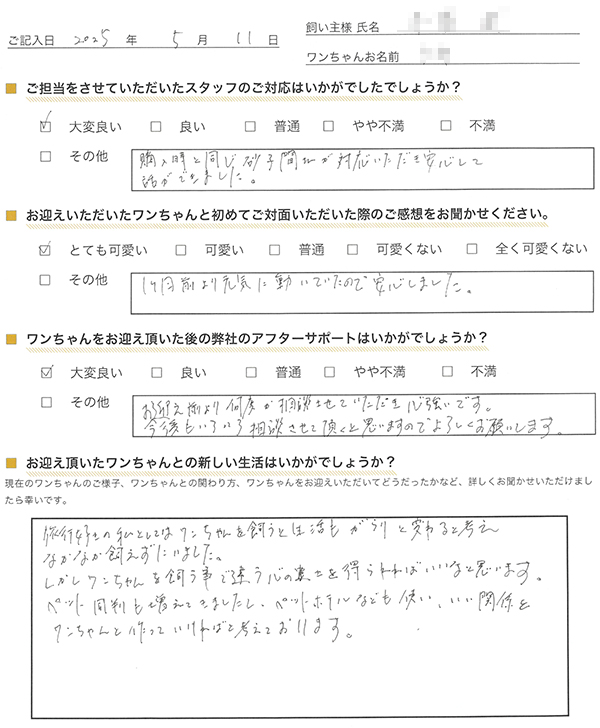 ご記入日 2025 年 5 月 11 日
飼い主様 氏名
ワンちゃんお名前
ご担当をさせていただいたスタッフのご対応はいかがでしたでしょうか？
☑ 大変良い □ 良い □ 普通 □ やや不満 □ 不満
□ その他
購入時と同じ砂子間さんが対応いただき安心して
話ができました。
お迎えいただいたワンちゃんと初めてご対面いただいた際のご感想をお聞かせください。
☑ とても可愛い □ 可愛い □ 普通 □ 可愛くない □ 全く可愛くない
□ その他
1ヶ月前より元気に動いていたので安心しました。
ワンちゃんをお迎え頂いた後の弊社のアフターサポートはいかがでしょうか？
☑ 大変良い □ 良い □ 普通 □ やや不満 □ 不満
□ その他
お迎え前より何度か相談させていただき心強いです。
今後もいろいろ相談させて頂くと思いますのでよろしくお願いします。
お迎え頂いたワンちゃんとの新しい生活はいかがでしょうか？
現在のワンちゃんのご様子、ワンちゃんとの関わり方、ワンちゃんをお迎えいただいてどうだったかなど、詳しくお聞かせいただけまし
たら幸いです。
旅行好きの私としてはワンちゃんを飼うと生活もガラリと変わると考え
なかなか飼えずにいました。
しかしワンちゃんを飼う事で違う心の豊かさを得られればいいなと思います。
ペット同伴も増えてきましたし、ペットホテルなども使い、いい関係を
ワンちゃんと作っていければと考えております。